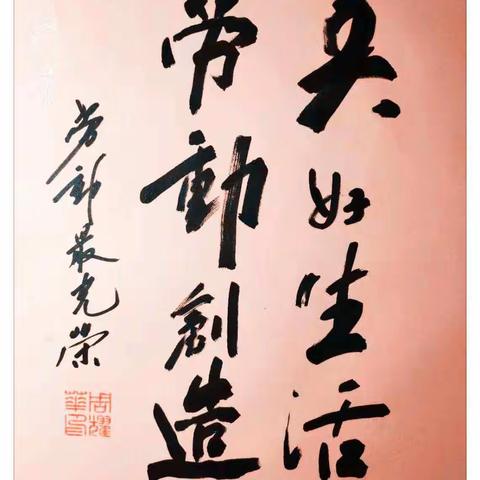 美好生活
劳動創造
劳動最光榮
周耀
華印